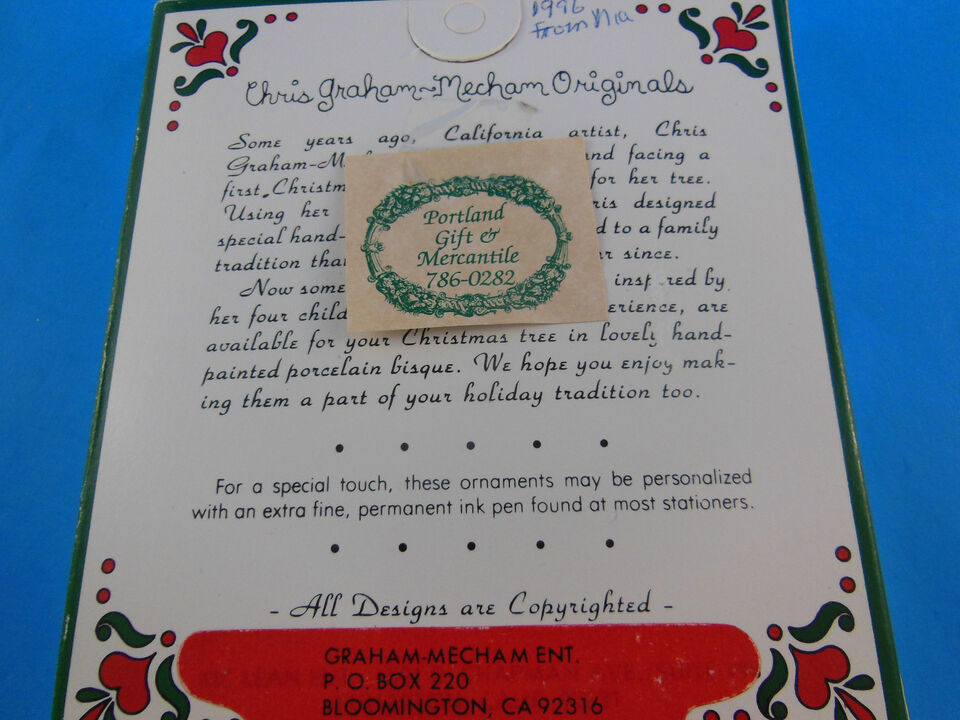 1996
From Nia
Chris Graham~Mecham Originals
Some years ago, California artist, Chris
Graham-M and facing a
first Christm for her tree.
Using her ris designed
special hand- d to a family
tradition tha r since.
Now some insp red by
her four child erience, are
available for your Christmas tree in lovely hand-
painted porcelain bisque. We hope you enjoy mak-
ing them a part of your holiday tradition too.
Portland
Gift &
Mercantile
786-0282
• • • • •
For a special touch, these ornaments may be personalized
with an extra fine, permanent ink pen found at most stationers.
• • • • •
- All Designs are Copyrighted -
GRAHAM-MECHAM ENT.
P. O. BOX 220
BLOOMINGTON, CA 92316